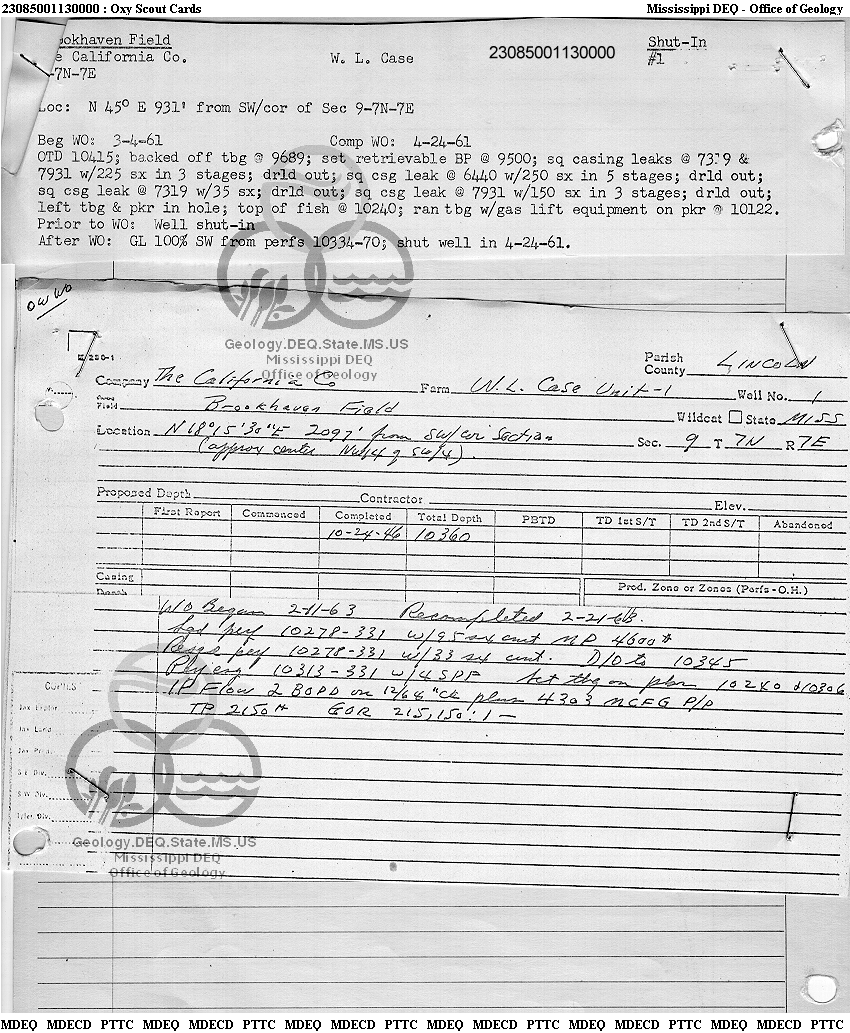 23085001130000 : Oxy Scout Cards Mississippi DEQ - Office of Geology
ookhaven Field Shut-In
e California Co. W. L. Case 23085001130000 #1
-7N-7E
Loc: N 45° E 931' from SW/cor of Sec 9-7N-7E
Beg WO: 3-4-61 Comp WO: 4-24-61
OTD 10415; backed off tbg @ 9689; set retrievable BP @ 9500; sq casing leaks @ 7319 &
7931 w/225 sx in 3 stages; drld out; sq csg leak @ 6440 w/250 sx in 5 stages; drld out;
sq csg leak @ 7319 w/35 sx; drld out; sq csg leak @ 7931 w/150 sx in 3 stages; drld out;
left tbg & pkr in hole; top of fish @ 10240; ran tbg w/gas lift equipment on pkr @ 10122.
Prior to WO: Well shut-in
After WO: GL 100% SW from perfs 10334-70; shut well in 4-24-61.
OWWO
Geology.DEQ.State.MS.US
Mississippi DEQ
Office of Geology
E/250-1
Parish
County LINCOLN
Company The California Co Farm W.L. Case Unit-1 Well No. 1
Field Brookhaven Field Wildcat State MISS
Location N 18°15'30"E 2097' from SW/cor Section Sec. 9 T. 7N R 7E
(approx center NW/4 of SW/4)
Proposed Depth Contractor Elev.
First Report Commenced Completed Total Depth PBTD TD 1st S/T TD 2nd S/T Abandoned
10-24-46 10360
Casing Prod. Zone or Zones (Perfs-O.H.)
Depth
W/O Began 2-11-63 Recompleted 2-21-63.
Sqd perf 10278-331 w/95 sx cmt MP 4600#
Resqd perf 10278-331 w/33 sx cmt. D/O to 10345
10313-331 w/4SPF Set tbg on pkr 10240 & 10306
IP Flow 2 BOPD on 12/64 "Ck plus 4303 MCFG P/D
TP 2150# GOR 215,150:1 -
COPIES
Tax Land
S E Div.
S W Div.
Tyler Div.
Geology.DEQ.State.MS.US
Mississippi DEQ
Office of Geology
MDEQ MDECD PTTC MDEQ MDECD PTTC MDEQ MDECD PTTC MDEQ MDECD PTTC MDEQ MDECD PTTC MDEQ MDECD PTTC